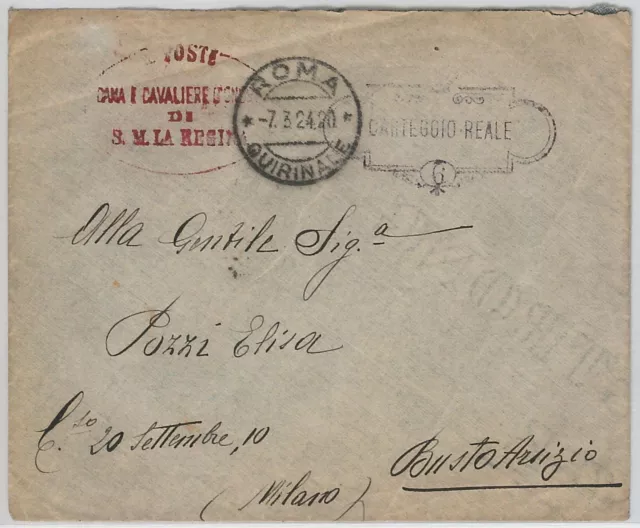 POSTE
DAMA E CAVALIERE D'ONORE
DI
S. M. LA REGINA
ROMA
-7.3.24.20
QUIRINALE
CARTEGGIO·REALE
6
Alla Gentile Sig.a
Pozzi Elisa
C.so 20 Settembre, 10
Busto Arsizio
(Milano)